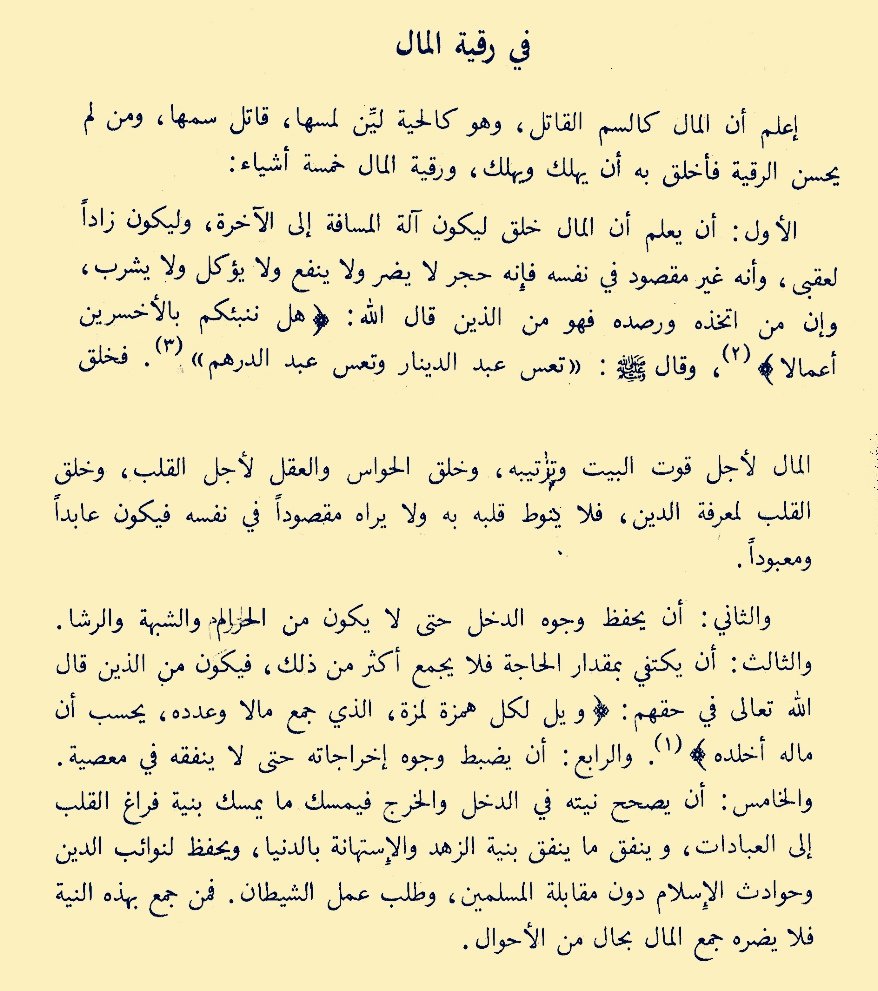 في رقية المال
إعلم أن المال كالسم القاتل، وهو كالحية ليِّن لمسها، قاتل سمها، ومن لم
يحسن الرقية فأخلق به أن يهلك ويهلك، ورقية المال خمسة أشياء:
الأول: أن يعلم أن المال خلق ليكون آلة المسافة إلى الآخرة، وليكون زاداً
لعقبى، وأنه غير مقصود في نفسه فإنه حجر لا يضر ولا ينفع ولا يؤكل ولا يشرب،
وإن من اتخذه ورصده فهو من الذين قال الله: ﴿هل ننبئكم بالأخسرين
أعمالا﴾ (٢)، وقال ﷺ: «تعس عبد الدينار وتعس عبد الدرهم» (٣). فخلق
المال لأجل قوت البيت وتزتيبه، وخلق الحواس والعقل لأجل القلب، وخلق
القلب لمعرفة الدين، فلا ينوط قلبه به ولا يراه مقصوداً في نفسه فيكون عابداً
ومعبوداً.
والثاني: أن يحفظ وجوه الدخل حتى لا يكون من الحرام والشبهة والرشا.
والثالث: أن يكتفي بمقدار الحاجة فلا يجمع أكثر من ذلك، فيكون من الذين قال
الله تعالى في حقهم: ﴿ويل لكل همزة لمزة، الذي جمع مالا وعدده، يحسب أن
ماله أخلده﴾ (١). والرابع: أن يضبط وجوه إخراجاته حتى لا ينفقه في معصية.
والخامس: أن يصحح نيته في الدخل والخرج فيمسك ما يمسك بنية فراغ القلب
إلى العبادات، وينفق ما ينفق بنية الزهد والإستهانة بالدنيا، ويحفظ لنوائب الدين
وحوادث الإسلام دون مقابلة المسلمين، وطلب عمل الشيطان. فمن جمع بهذه النية
فلا يضره جمع المال بحال من الأحوال.